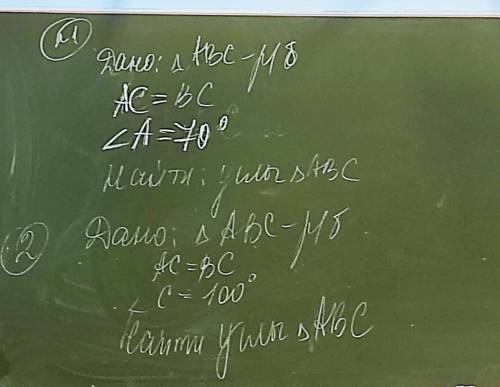 N1
Дано: △ABC - р/б
AC = BC
∠A = 70°
Найти: углы △ABC
2
Дано: △ABC - р/б
AC = BC
∠C = 100°
Найти углы △ABC